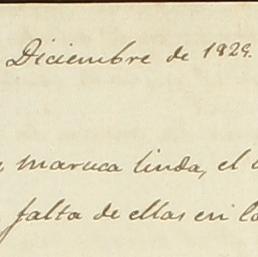 Diciembre de 1829.
maruca linda, el
falta de ellas en la